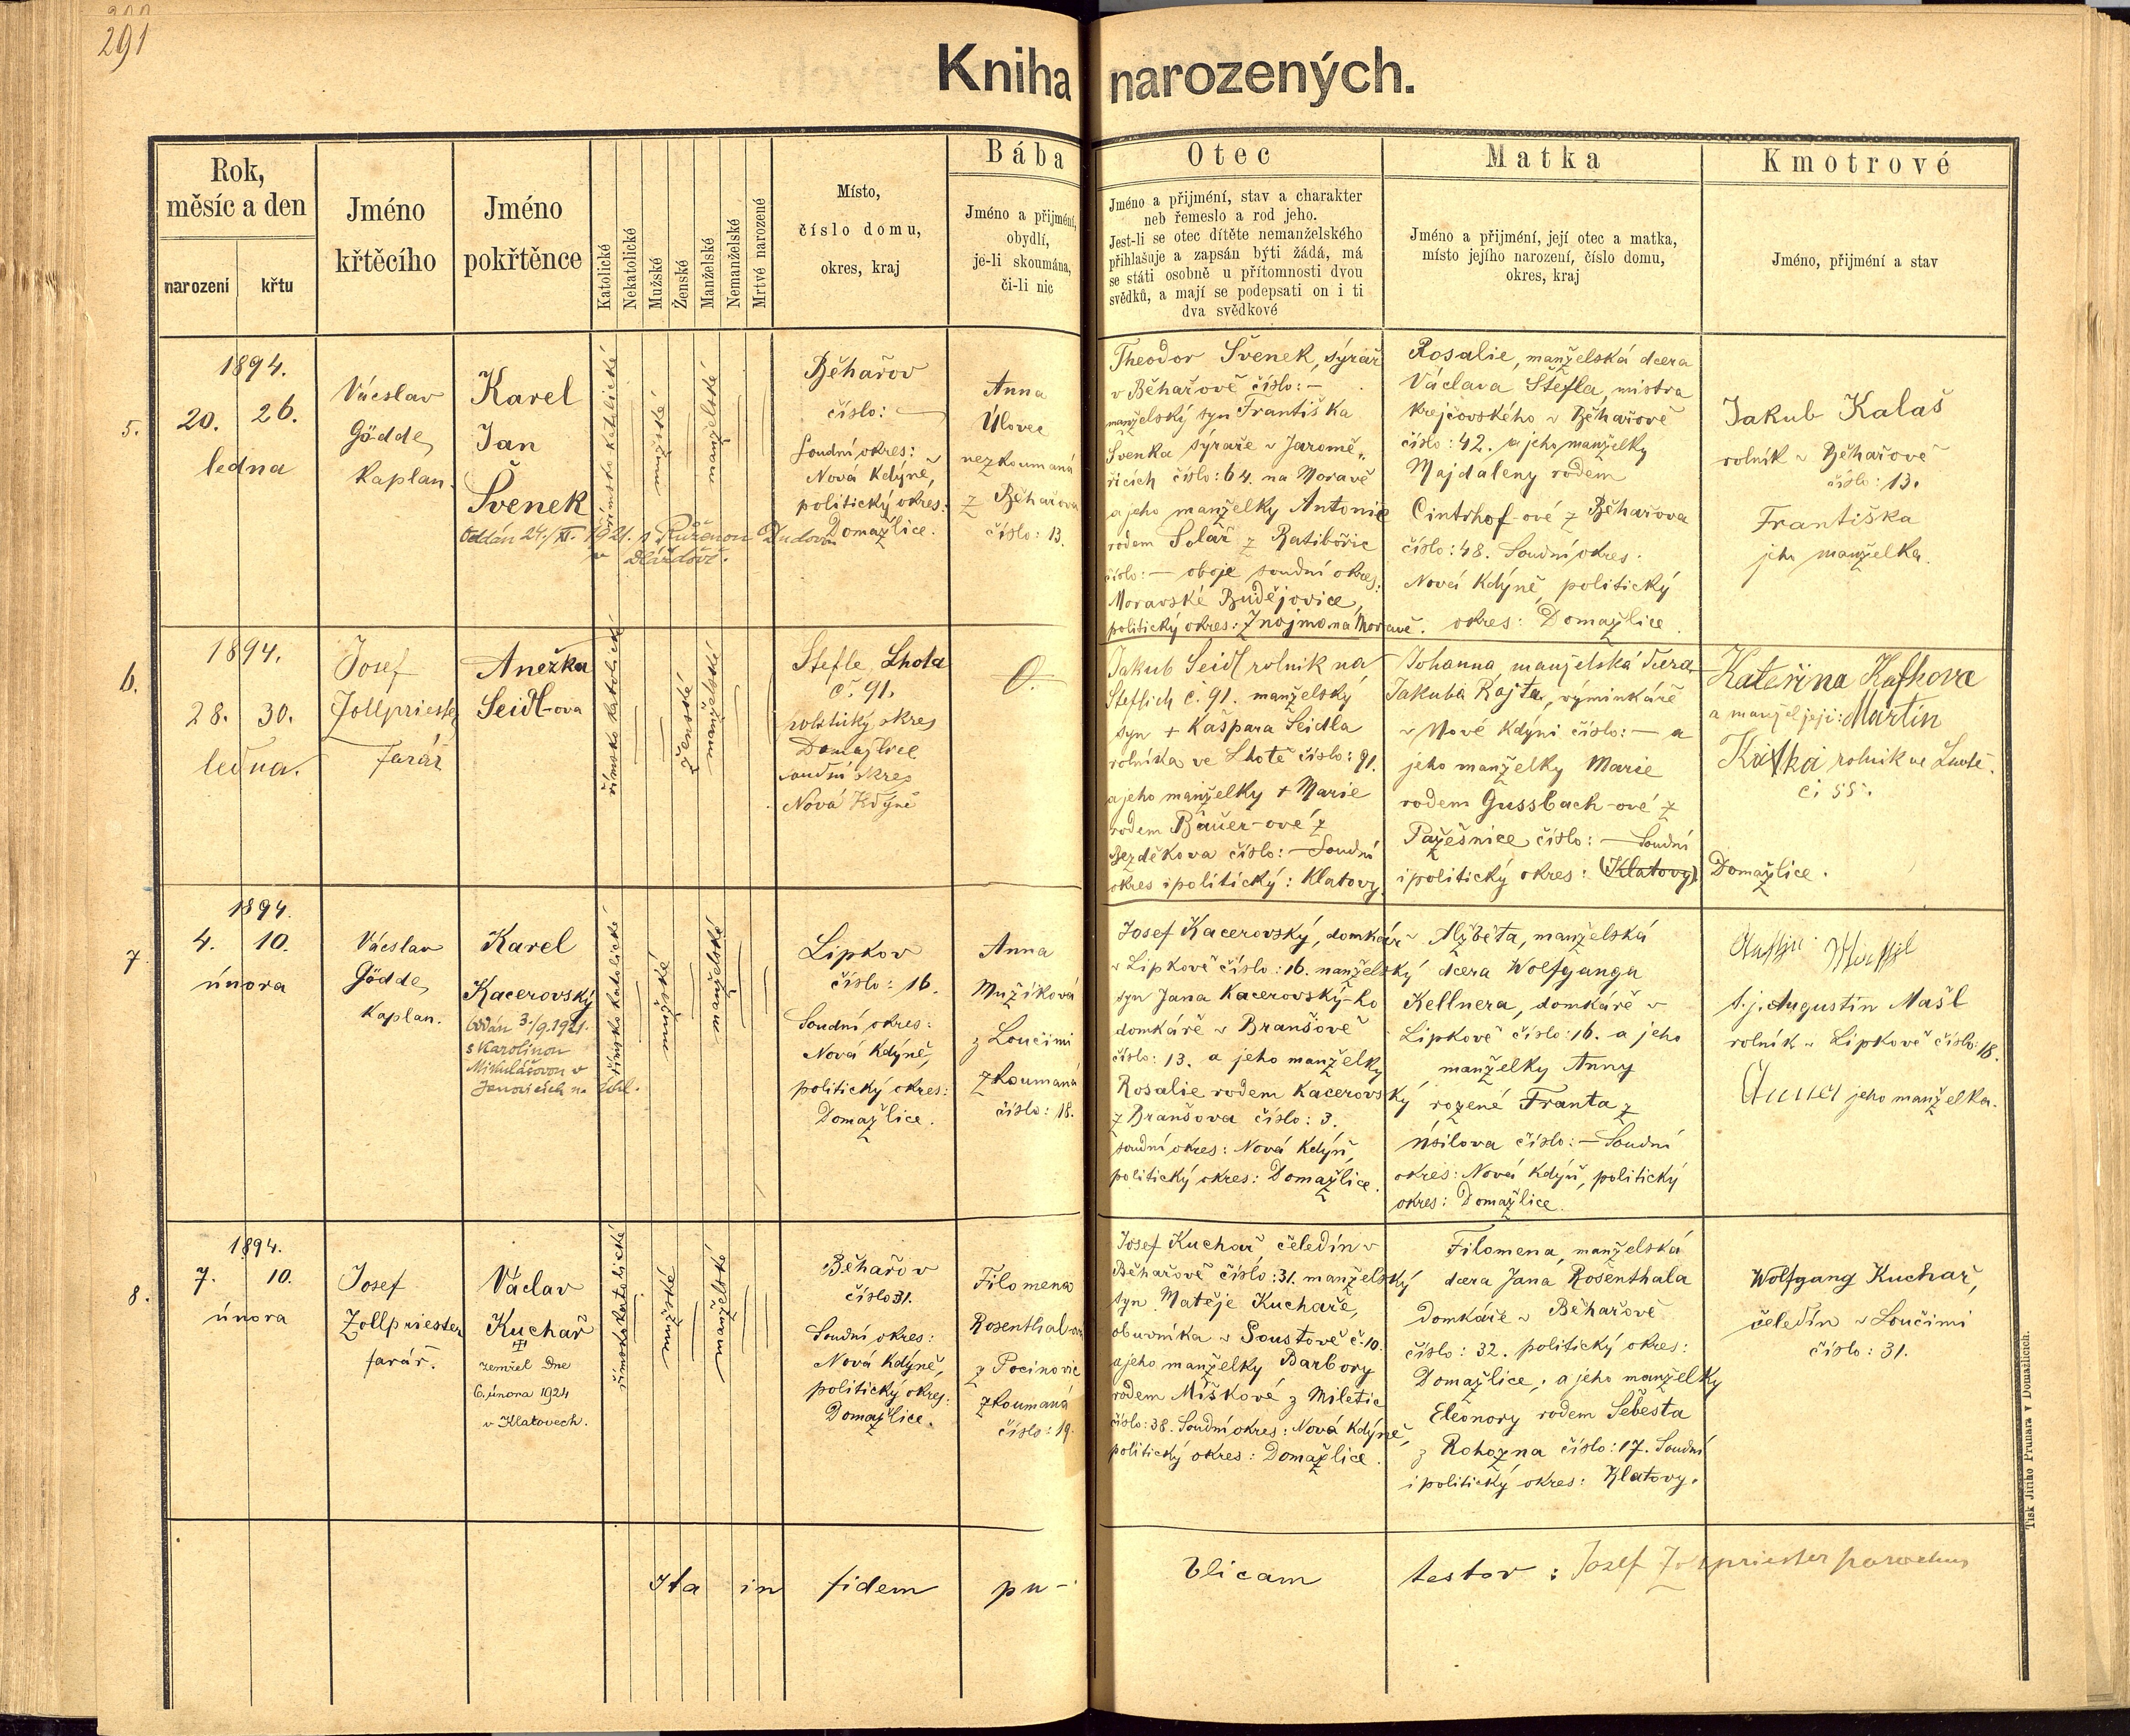 291
Kniha narozených.
Rok,
měsíc a den
narození
křtu
Jméno
křtěcího
Jméno
pokřtěnce
Katolické
Nekatolické
Mužské
Ženské
Manželské
Nemanželské
Mrtvé narozené
Místo,
číslo domu,
okres, kraj
Bába
Jméno a příjmení,
obydlí,
je-li skoumána,
či-li nic
Otec
Jméno a přijmění, stav a charakter
neb řemeslo a rod jeho.
Jest-li se otec dítěte nemanželského
přihlašuje a zapsán býti žádá, má
se státi osobně u přítomnosti dvou
svědků, a mají se podepsati on i ti
dva svědkové
Matka
Jméno a přijmení, její otec a matka,
místo jejího narození, číslo domu,
okres, kraj
Kmotrové
Jméno, přijmení a stav
5.
1894.
20. 26.
ledna
Václav
Gödde,
Kaplan.
Karel
Jan
Švenek
Oddán 24./XI. 1921. s Růženou Dudovou
v Dlážďově.
římsko katolické
mužské
manželské
Běhařov
číslo: —
Soudní okres:
Nová Kdýně,
politický okres:
Domažlice.
Anna
Úlovec
nezkoumaná
z Běhařova
číslo: 13.
Theodor Švenek, sýrař
v Běhařově číslo: —
manželský syn Františka
Švenka sýraře v Jaromě-
řicích číslo: 64. na Moravě
a jeho manželky Antonie
rodem Solař z Ratibořic
číslo: — oboje soudní okres:
Moravské Budějovice,
politický okres: Znojmo na Moravě.
Rosalie, manželská dcera
Václava Štefla, mistra
krejčovského v Běhařově
číslo: 42. a jeho manželky
Majdaleny rodem
Cintrhof-ové z Běhařova
číslo: 48. Soudní okres:
Nová Kdýně, politický
okres: Domažlice.
Jakub Kalaš
rolník v Běhařově
číslo: 13.
Františka
jeho manželka.
6.
1894.
28. 30.
ledna.
Josef
Zollpriester
Farář
Anežka
Seidl-ova
římsko katolické
ženské
manželské
Stefle Lhota
č. 91.
politický okres
Domažlice
soudní okres
Nová Kdýně
0.
Jakub Seidl rolník na
Steflích č. 91. manželský
syn + Kašpara Seidla
rolníka ve Lhotě číslo: 91.
a jeho manželky + Marie
rodem Bauer-ové z
Bezděkova číslo: — Soudní
okres i politický: Klatovy.
Johanna, manželská dcera
Jakuba Rajta, výminkáře
v Nové Kdýni číslo: — a
jeho manželky Marie
rodem Gussbach-ové z
Pazešnice číslo: — Soudní
i politický okres: (Klatovy) Domažlice.
Kateřina Kafkova
a manžel její: Martin
Kafka rolník ve Lhotě.
č. 55.
7
1894.
4. 10.
února
Václav
Gödde,
Kaplan.
Karel
Kacerovský
Oddán 3./9.1921.
s Karolinou
Mikulášovou v
Janovicích n. Úhl.
římsko katolické
mužské
manželské
Lipkov
číslo: 16.
Soudní okres:
Nová Kdýně,
politický okres:
Domažlice.
Anna
Mužíková
z Loučimi
zkoumaná
číslo: 18.
Josef Kacerovský, domkář
v Lipkově číslo: 16. manželský
syn Jana Kacerovský-ho
domkáře v Branšově
číslo: 13. a jeho manželky
Rosalie rodem Kacerovský
z Branšova číslo: 3.
soudní okres: Nová Kdýň,
politický okres: Domažlice.
Alžběta, manželská
dcera Wolfganga
Kellnera, domkáře v
Lipkově číslo: 16. a jeho
manželky Anny
rozené Franta z
Úsilova číslo: — Soudní
okres: Nová Kdýň, politický
okres: Domažlice.
t.j. Augustin Mašl
rolník v Lipkově číslo: 18.
Anna jeho manželka.
8.
1894.
7. 10.
února
Josef
Zollpriester
farář.
Václav
Kuchař
zemřel dne
6. února 1924
v Klatovech.
římskokatolické
mužské
manželské
Běhařov
číslo 31.
Soudní okres:
Nová Kdýně,
politický okres:
Domažlice.
Filomena
Rosenthal-ová
z Pocinovic
zkoumaná
číslo: 19.
Josef Kuchař, čeledín v
Běhařově číslo: 31. manželský
syn Matěje Kuchaře,
obuvníka v Soustově č. 10.
a jeho manželky Barbory
rodem Miškové z Miletic
číslo: 38. Soudní okres: Nová Kdýně,
politický okres: Domažlice.
Filomena, manželská
dcera Jana Rosenthala
domkáře v Běhařově
číslo: 32. politický okres:
Domažlice, a jeho manželky
Eleonory rodem Šebesta
z Rohozna číslo: 17. Soudní
i politický okres: Klatovy.
Wolfgang Kuchař,
čeledín v Loučimi
číslo: 31.
Ita in fidem pu- blicam testor: Josef Zollpriester parochus
Tisk Jiřího Prunara v Domažlicích.